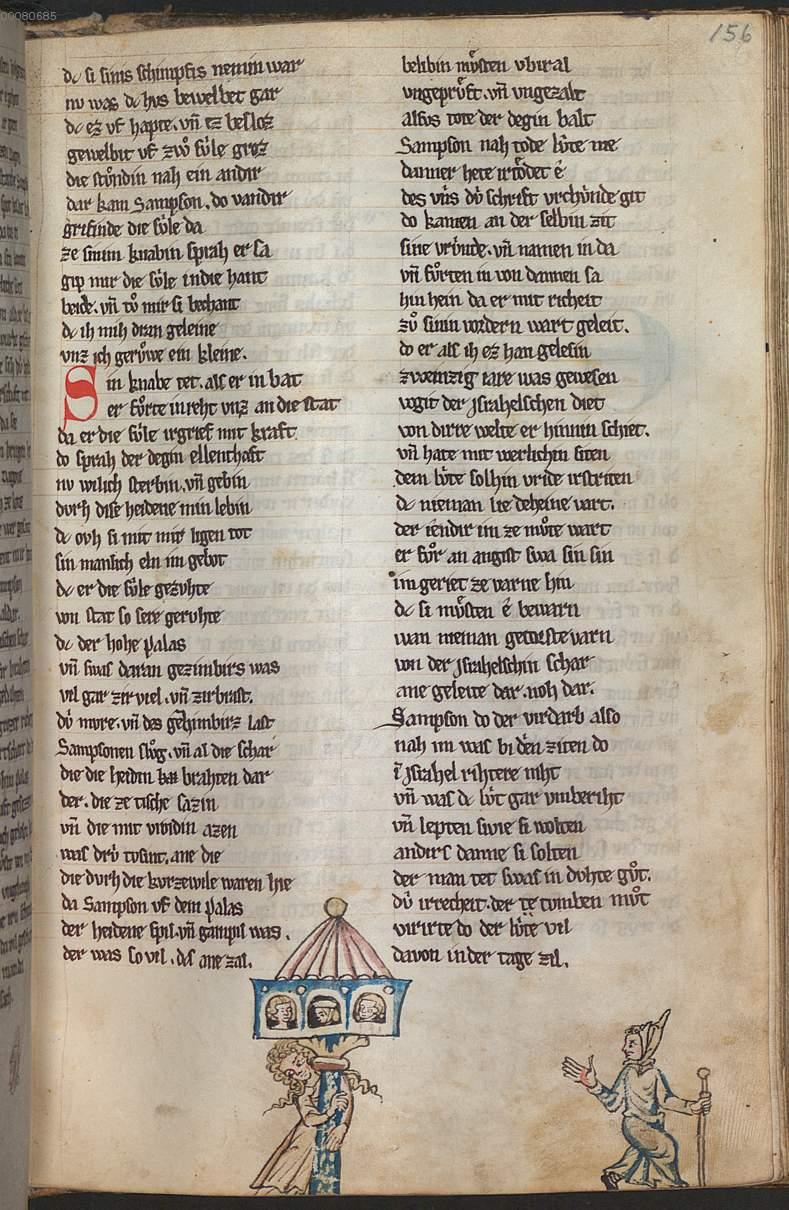 00080685
156
dc si sinis schimpfis nemin war
nv was dc hvs bewelbet gar
dc ez vf hapte. vn̄ ez besloz
gewelbit vf zwo sv̍le groz
die stv̊ndin nah ein andir
dar kam Sampson. do vandir
grifinde die sv̍le da
ze sinim knabin sprah er sa
gip mir die sv̍le in die hant
beide. vn̄ tv̊ mir si bechant
dc ih mih dran geleine
vnz ich gerv̊we ein kleine.
Sin knabe tet. als er in bat
er fv̊rte in reht vnz an die stat
da er die sv̍le irgrief mit kraft
do sprah der degin ellenthaft
nv wil ich sterbin. vn̄ gebin
dvrh dise heidene min lebin
dc ovh si mit mir ligen tot
sin manlich ellin im gebot
dc er die sv̍le gezvhte
von stat so sere gervhte
dc der hohe palas
vn̄ swas daran gezimbirs was
vil gar zirviel. vn̄ zirbrast.
dv̍ mvre. vn̄ des gezimbirz last
Sampsonen slv̊g. vn̄ al die schar
die die heidin brahten dar
der. die ze tische sazin
vn̄ die mit vrovdin azen
was drv̍ tvsint. ane die
die dvrh die kvrzewile waren hie
da Sampson vf dem palas
der heidene spil. vn̄ gampil was.
der was so vil. das ane zal.
belibin mv̊sten vbir al
vngeprv̊ft. vn̄ vngezalt
alsvs tote der degin balt
Sampson nah tode lv̍te me
danner hete irtôdet ê
des vns dv̍ schrift vrchv̍nde git
do kamen an der selbin zit
sine vrv̍nde. vn̄ namen in da
vn̄ fv̊rten in von dannen sa
hin hein da er mit richeit
zv̊ sinin vordern wart geleit.
do er als ih ez han gelesin
zweinzig iare was gewesen
vogit der Israhelschen diet
von dirre welte er hinnin schiet.
vn̄ hate mit werlichin siten
dem lv̍te solhin vride irstriten
dc nieman lie deheine vart.
der iendir im ze mv̊te wart
er fv̊r an angist swa sin sin
im geriet ze varne hin
dc si mv̊sten ê bewarn
wan nieman getorste varn
von der Israhelschin schar
ane geleite dar. noh dar.
Sampson do der virdarb also
nah im was bi den ziten do
in Israhel rihtere niht
vn̄ was dc lv̍t gar vmberiht
vn̄ lepten swie si wolten
andirs danne si solten
der man tet swas in dvhte gv̊t.
dv̍ irrecheit. der tvmben mv̊t
virirte do der lv̍te vil
davon in der tage zil.